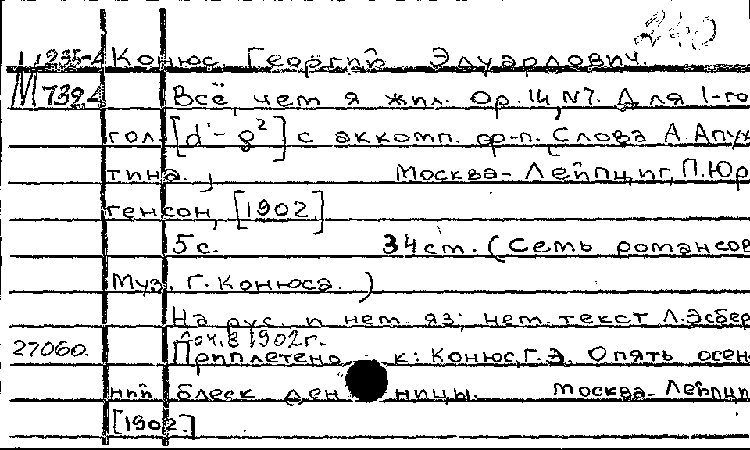 240
1235-4 Конюс, Георгий Эдуардович.
М 739-4 Всё, чем я жил. Op. 14, N7. Для 1-го
гол. [d¹-g²] с аккомп. ф-п. Слова А. Апух-
тина. Москва-Лейпциг, П. Юр-
генсон, [1902.]
5с. 34 см. (Семь романсов
Муз. Г. Конюса.)
На рус. и нем. яз; нем. текст Л. Эсбер
1902 г.
27060. Приплетено к: Конюс, Г.Э. Опять осен-
ний блеск денницы. Москва-Лейпци
[1902.]